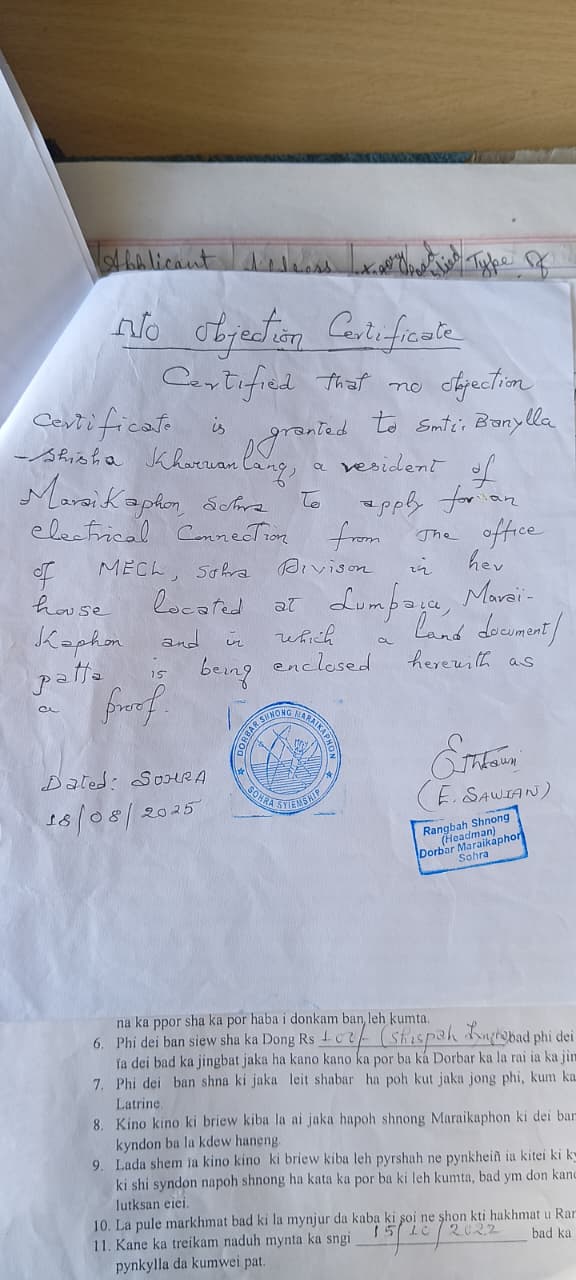 Applicant Address Type of
No Objection Certificate
Certified that no objection
Certificate is granted to Smti. Banylla
-Shisha Kharwanlang, a resident of
MaraiKaphon, Sohra to apply for an
electrical Connection from The office
of MECL, Sohra Divison in her
house located at Lumpaia, Marai-
Kaphon and in which a land document/
patta is being enclosed herewith as
a proof.
DORBAR SHNONG MARAIKAPHON
SOHRA SYIEMSHIP
Dated: SOHRA
18/08/2025
(E. SAWIAN)
Rangbah Shnong
(Headman)
Dorbar Maraikaphor
Sohra
na ka ppor sha ka por haba i donkam ban leh kumta.
6. Phi dei ban siew sha ka Dong Rs bad phi dei
ïa dei bad ka jingbat jaka ha kano kano ka por ba ka Dorbar ka la rai ia ka jin
7. Phi dei ban shna ki jaka leit shabar ha poh kut jaka jong phi, kum ka
Latrine.
8. Kino kino ki briew kiba la ai jaka hapoh shnong Maraikaphon ki dei ban
kyndon ba la kdew haneng.
9. Lada shem ia kino kino ki briew kiba leh pyrshah ne pynkheiñ ia kitei ki ky
ki shi syndon napoh shnong ha kata ka por ba ki leh kumta, bad ym don kano
lutksan eiei.
10. La pule markhmat bad ki la mynjur da kaba ki soi ne shon kti hakhmat u Ran
11. Kane ka treikam naduh mynta ka sngi 15/10/2022 bad ka
pynkylla da kumwei pat.